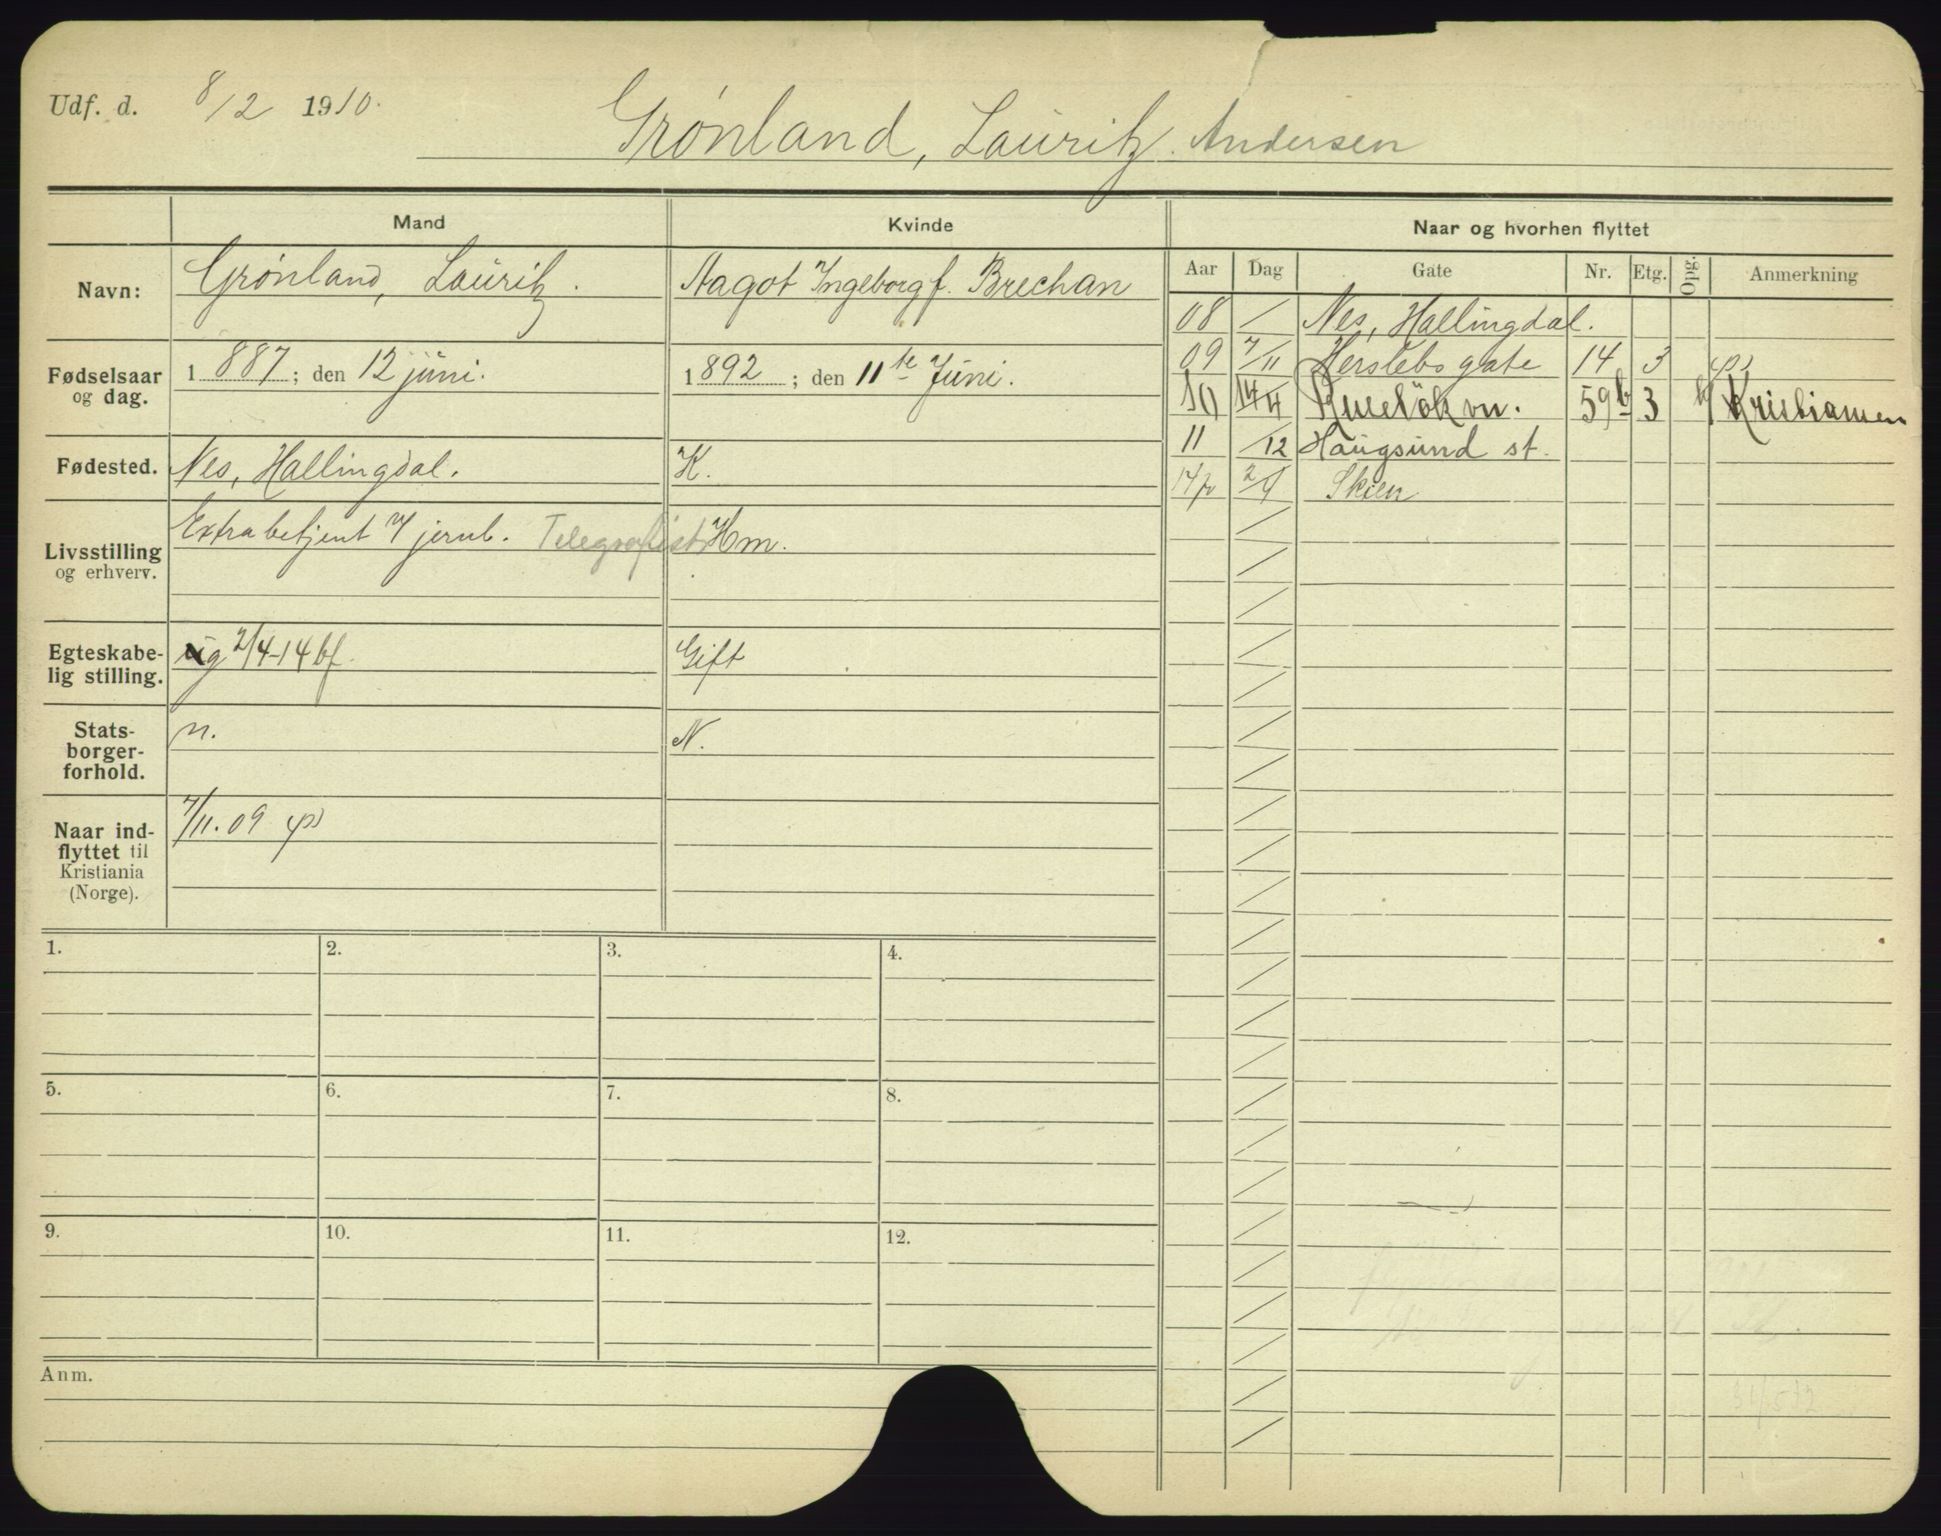 Udf. d. 8/12 1910.
Grønland, Lauritz Andersen
Mand Kvinde Naar og hvorhen flyttet
Aar Dag Gate Nr. Etg. Opg. Anmerkning
Navn: Grønland, Lauritz. Aagot Ingeborg f. Brechan
Fødselsaar og dag. 1887; den 12 juni. 1892; den 11te Juni.
Fødested. Nes, Hallingdal. K.
Livsstilling og erhverv. Extrabetjent v/ jernb. Telegrafist Hm.
Egteskabe-
lig stilling. ug 2/4-14 bf. Gift
Stats-
borger-
forhold. n. N.
Naar ind-
flyttet til
Kristiania
(Norge). 7/11.09 ps
08 / Nes, Hallingdal.
09 7/11 Herslebs gate 14 3 ps
10 14/4 Ruseløkvn. 59b 3 Kristiansen
11 /12 Haugsund st.
14 2/4 Skien
1. 2. 3. 4.
5. 6. 7. 8.
9. 10. 11. 12.
Anm.